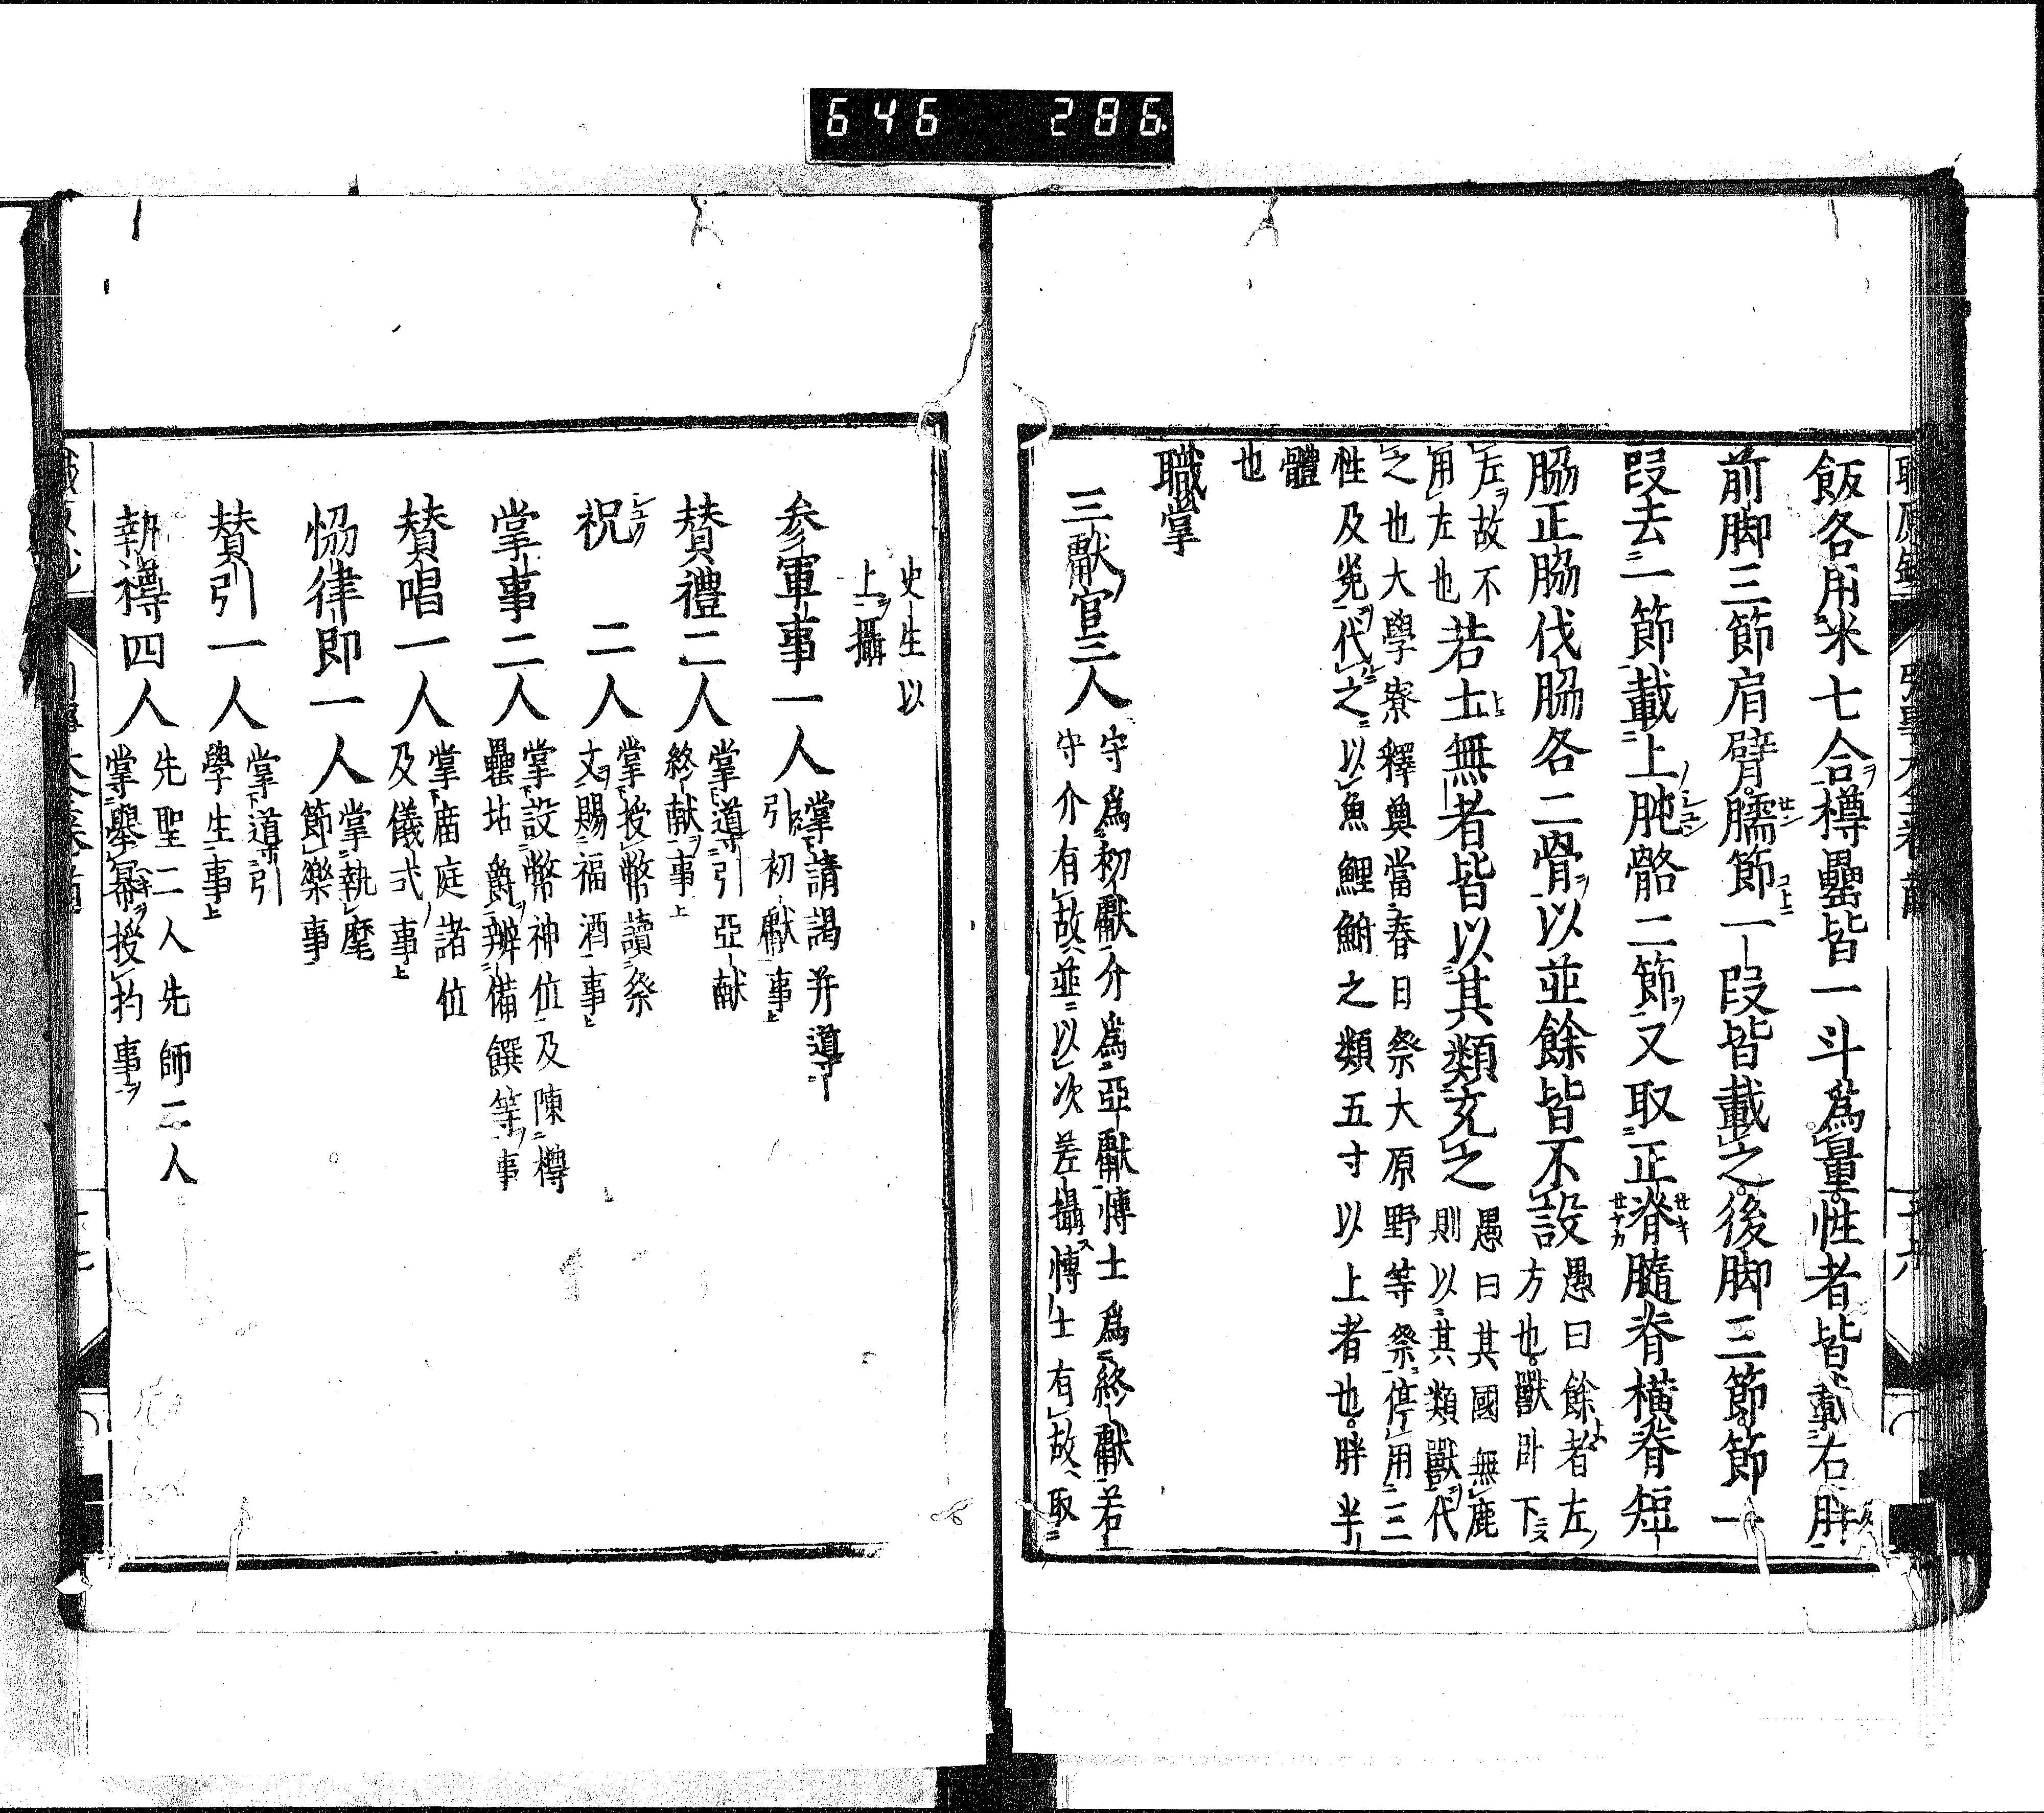 646 286
飯各用米七合樽罍皆一斗爲量性者皆載右胖
前脚三節肩臂臑節一段皆載之後脚三節節一
段去一節載上肫骼二節又取正脊髄脊横脊短
脇正脇伐脇各二骨以並餘皆不設
愚曰餘者左
方也獣卧下
左故不
用左也
若土無者皆以其類充之
愚曰其國無鹿
則以其類獸代
之也大學寮釋奠當春日祭大原野等祭停用三
性及兎代之以魚鯉鮒之類五寸以上者也胖半
體
也
職掌
三獻官三人
守爲初獻介爲亞獻博士爲終獻若
守介有故並以次差攝博士有故取
史生以
上攝
参軍事一人
掌請謁并導
引初獻事
賛禮二人
掌導引亞献
終献事
祝 二人
掌授幣讀祭
文賜福酒事
掌事二人
掌設幣神位及陳樽
罍坫爵辨備饌等事
賛唱一人
掌庿庭諸位
及儀式事
恊律郎一人
掌執麾
節樂事
賛引一人
掌導引
學生事
執樽四人
先聖二人先師二人
掌擧冪授抅事